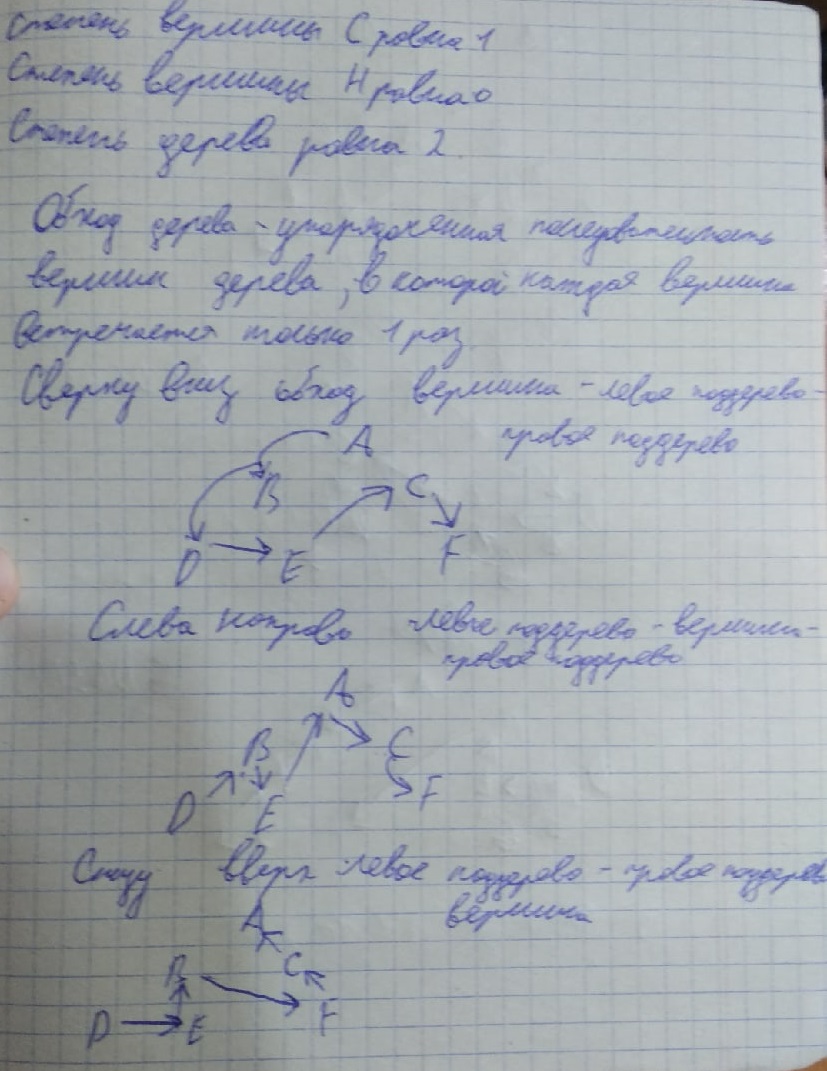 Степень вершины C равна 1
Степень вершины H равна 0
Степень дерева равна 2.
Обход дерева - упорядоченная последовательность
вершин дерева, в которой каждая вершина
встречается только 1 раз
Сверху вниз обход вершина - левое поддерево -
правое поддерево
A
B C
D E F
Слева направо - левое поддерево - вершина -
правое поддерево
A
B C
D E F
Снизу вверх - левое поддерево - правое поддерево
вершина
A
B C
D E F